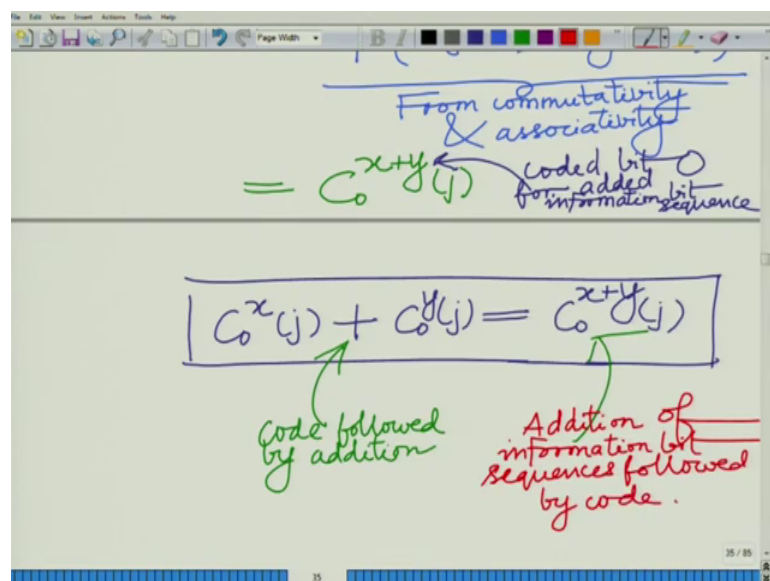 File Edit View Insert Actions Tools Help
Page Width
From commutativity
& associativity
= C₀^{x+y}(j)
coded bit 0
for added
information bit
sequence
C₀^x(j) + C₀^y(j) = C₀^{x+y}(j)
code followed
by addition
Addition of
information bit
sequences followed
by code.
35 / 85
35